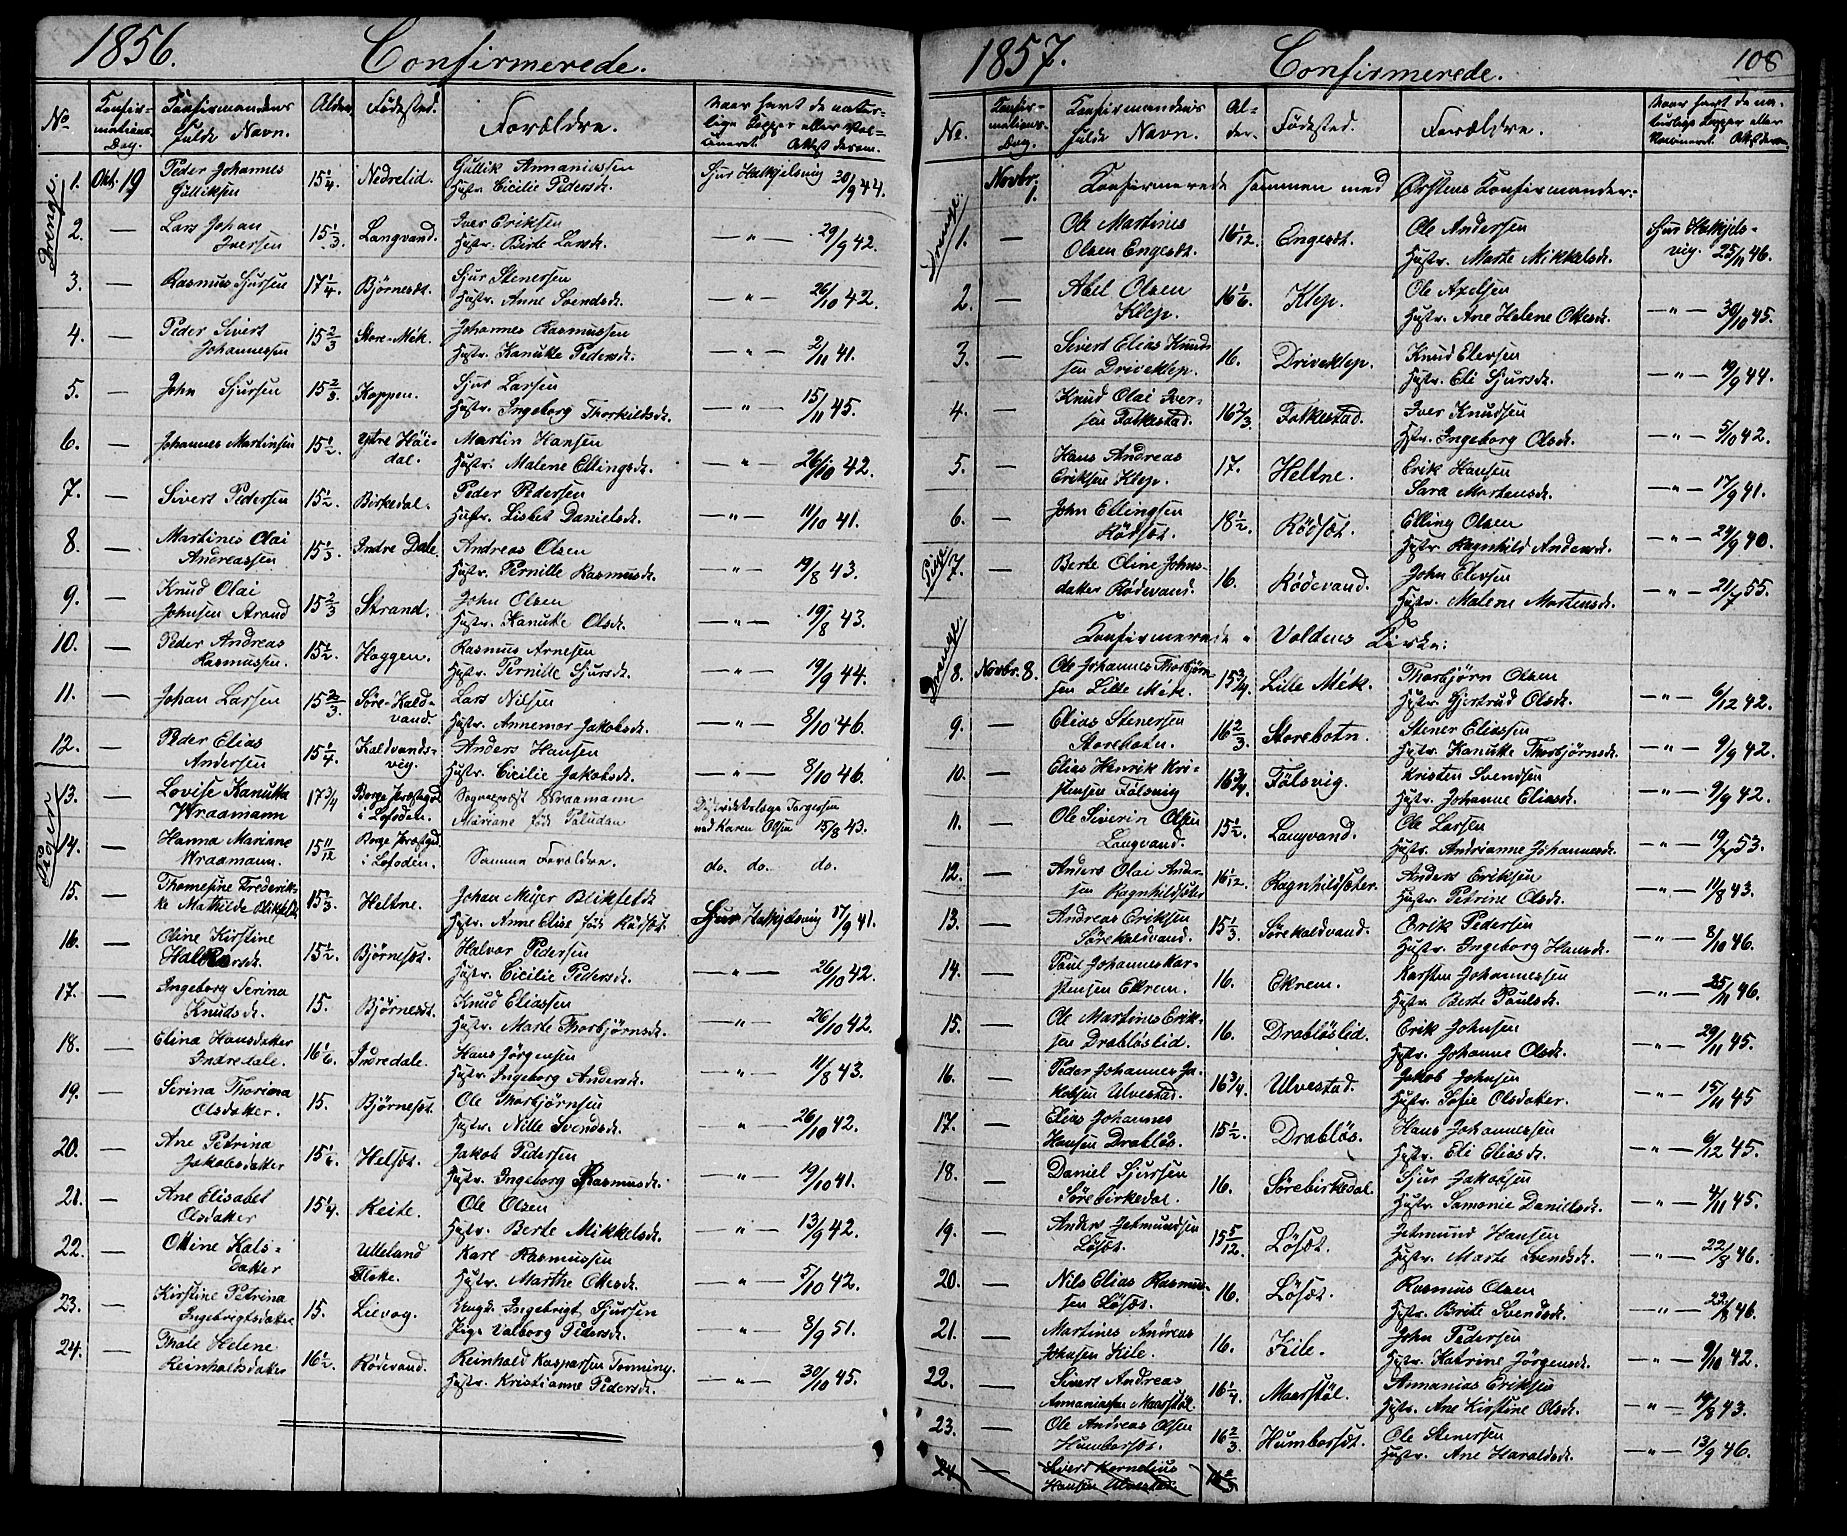 1856. Confirmerede.
No Konfirmations Dag. Konfirmandens fulde Navn. Alder Fødested. Forældre. Naar havt de naturlige Kopper eller Vaccineret. Attest derom.
Drenge.
1. Okt. 19 Peder Johannes Gulliksen 15 1/4. Nedrelid. Gullik Annaniassen Hustr. Cicilie Pedersdr. Sjur Halkjelsvig 30/9 44.
2. — Lars Johan Iversen 15 1/3. Langvand. Iver Eriksen Hustr. Birte Larsdr. — " — 29/9 42.
3. — Rasmus Sjursen 17 1/4. Bjørnesdt. Sjur Stenersen Hustr. Anne Svendsdr. — " — 26/10 42.
4. — Peder Sivert Johannessen 15 2/3 Store-Mék. Johannes Rasmussen Hustr. Kanukke Pedersdr. — " — 2/11 41.
5. — John Sjursen 15 2/3. Koppen. Sjur Larsen Hustr. Ingeborg Thorkildsdr. — " — 15/11 45.
6. — Johannes Martinsen 15 1/2. Ytre Höidal. Martin Hansen Hustr. Malene Ellingsdr. — " — 26/10 42.
7. — Sivert Pedersen 15 1/2. Birkedal. Peder Pedersen Hustr. Lisbet Danielsdr. — " — 11/10 41.
8. — Martines Olai Andreassen 15 1/3. Indre Dale. Andreas Olsen Hustr. Pernille Rasmusdr. — " — 19/8 43.
9. — Knud Olai Johnsen Strand 15 2/3 Strand. John Olsen Hustr. Kanukke Olsdr. — " — 19/8 43.
10. — Peder Andreas Rasmussen. 15 1/2. Haggen. Rasmus Arnesen Hustr. Pernille Sjursdr. — " — 19/9 44.
11. — Johan Larsen 15 2/3. Søre-Kaldvand. Lars Nilsen Hustr. Annemor Jakobsdr. — " — 8/10 46.
12. — Peder Elias Andersen 15 1/4. Kaldvandsvig. Anders Hansen Hustr. Cicilie Jakobsdr. — " — 8/10 46.
Piger
13. — Lovise Kanutta Wraamann 17 3/4 Borge Præstegd i Lofoden. Sogneprest Wraamann Mariane født Paludan Distriktslæge Torgersen ved Karen Olsen 15/8 43.
14. — Hanna Mariane Wraamann. 15 11/12 Borge Præstegd i Lofoden. Samme Forældre. do. do. do.
15. — Thomesine Frederikke Mathilde Blikfeldt 15 2/3. Heltne. Johan Meyer Blikfeldt Hustr. Anne Elise født Rødset. Sjur Halkjelsvig 17/9 41.
16. — Oline Kirstine Halvorsdr. 15 1/2. Bjørnesdt. Halvor Pedersen Hustr. Cicilie Pedersdr. — " — 26/10 42.
17. — Ingeborg Serina Knudsdr. 15. Bjørnesdt. Knud Eliassen Hustr. Marte Thorbjørnsdr. — " — 26/10 42.
18. — Elina Hansdatter Indredale. 16 1/6. Indredale. Hans Jørgensen Hustr. Ingeborg Andersdr. — " — 11/8 43.
19. — Serina Thorina Olsdatter. 15. Bjørnesdt. Ole Thorbjörnsen Hustr. Nille Svendsdr. — " — 26/10 42.
20. — Ane Petrina Jakobsdatter 15 1/6. Helset. Jakob Pedersen Hustr. Ingeborg Rasmusdr. — " — 19/10 41.
21. — Ane Elisabet Olsdatter 15 1/4. Reite. Ole Olsen Hustr. Berte Mikkelsdr. — " — 13/9 42.
22. — Oline Kalsdatter Ulleland Floke. Karl Rasmussen Hustr. Marthe Ottesdr. — " — 5/10 42.
23. — Kirstine Petrina Ingebrigtsdatter 15. Lievog. Ungk. Ingebrigt Sjursen Pige Valborg Pedersdr. — " — 8/9 51.
24. — Thale Helene Reinholdsdatter 16 1/2. Rödevand. Reinhold Kaspersen Tonning. Hustr. Kristianne Pedersdr. — " — 30/10 45.
1857. Confirmerede. 108
No. Konfirmations Dag. Konfirmandens fulde Navn. Alder. Fødested. Forældre. Naar havt de naturlige Kopper eller Vaccineret. Attest derom
Novbr. 1. Konfirmerede sammen med Ørstens Konfirmander:
Drenge.
1. — Ole Martines Olsen Engesdt. 16 1/12. Engesdt. Ole Andersen Hustr. Marte Mikkelsdr. Sjur Halkjelsvig. 25/11 46.
2. — Abel Olsen Klep. 16 1/6. Klep. Ole Axelsen Hustr. Ane Helene Ottesdr. — " — 30/10 45.
3. — Sivert Elias Knudsen Driveklep. 16. Driveklep. Knud Elevsen Hustr. Eli Sjursdr. — " — 19/9 44.
4. — Knud Olai Iversen Folkestad. 16 2/3. Folkestad. Iver Knudsen Hstr. Ingeborg Olsdr. — " — 5/10 42.
5. — Hans Andreas Eriksen Klep. 17. Heltne. Erik Hansen Sara Martensdr. — " — 17/9 41.
6. — John Ellingsen Rödset. 18 1/2. Rödset. Elling Olsen Hustr. Ragnhild Andersdr. — " — 24/9 40.
Pige
7. — Berte Oline Johnsdatter Rödevand. 16. Rödevand. John Elevsen Hustr. Malene Mortensdr. — " — 21/7 55.
Konfirmerede i Voldens Kirke:
Drenge.
8. Novbr. 8. Ole Johannes Thorbjørnsen Lille Mék. 15 3/4. Lille Mék. Thorbjørn Olsen Hustr. Gjertrud Olsdr. — " — 6/12 42.
9. — Elias Stenersen Storebotn. 16 2/3. Storebotn. Stener Eliassen Hustr. Kanukke Thorbjørnsdr. — " — 9/9 42.
10. — Elias Henrik Kristensen Fölsvig 16 3/4. Fölsvig. Kristen Svendsen Hustr. Johanne Eliasdr. — " — 9/9 42.
11. — Ole Siverin Olsen Langvand. 15 1/2. Langvand. Ole Larsen Hustr. Andrianne Johannesdr. — " — 19/7 53.
12. — Anders Olai Andersen Ragnhildsöter 16 1/12. Ragnhildsöter. Anders Eriksen Hustr. Petrine Olsdr. — " — 11/8 43.
13. — Andreas Eriksen Sörekaldvand. 15 1/3. Sörekaldvand. Erik Pedersen Hustr. Ingeborg Hansdr. — " — 8/10 46.
14. — Paul Johannes Karstensen Ekrem. 16. Ekrem. Karsten Johannessen Hustr. Berte Paulsdr. — " — 25/11 46.
15. — Ole Martines Eriksen Drabløslid. 16. Drabløslid. Erik Johnsen Hustr. Johanne Olsdr. — " — 29/11 45.
16. — Peder Johannes Jakobsen Ulvestad. 16 3/4. Ulvestad. Jakob Johnsen Hustr. Sofie Olsdatter. — " — 15/11 45
17. — Elias Johannes Hansen Drabløs. 15 1/2. Drabløs. Hans Johannessen Hustr. Eli Eliasdr. — " — 6/12 45.
18. — Daniel Sjursen Sörebirkedal. 16. Sörebirkedal. Sjur Jakobsen Hustr. Samonie Danielsdr. — " — 4/11 45.
19. — Anders Jetmundsen Løset. 15 5/12. Løset. Jetmund Hansen Hustr. Marte Svendsdr. — " — 22/8 46.
20. — Nils Elias Rasmussen Løset. 16. Løset. Rasmus Olsen Hustr. Brite Svendsdr. — " — 22/8 46.
21. — Martines Andreas Johnsen Kile. 16. Kile. John Pedersen Hustr. Katrine Jörgensdr. — " — 9/10 42.
22. — Sivert Andreas Annaniassen Maarstøl. 16 1/4. Maarstøl. Annanias Eriksen Hustr. Ane Kirstine Olsdr. — " — 19/8 43.
23. — Ole Andreas Olsen Humborset. 16 2/3. Humborset. Ole Stenersen Hustr. Ane Haraldsdr. — " — 13/9 46.
24. — Sivert Kornelius Hansen Ulvestad 16 2/3